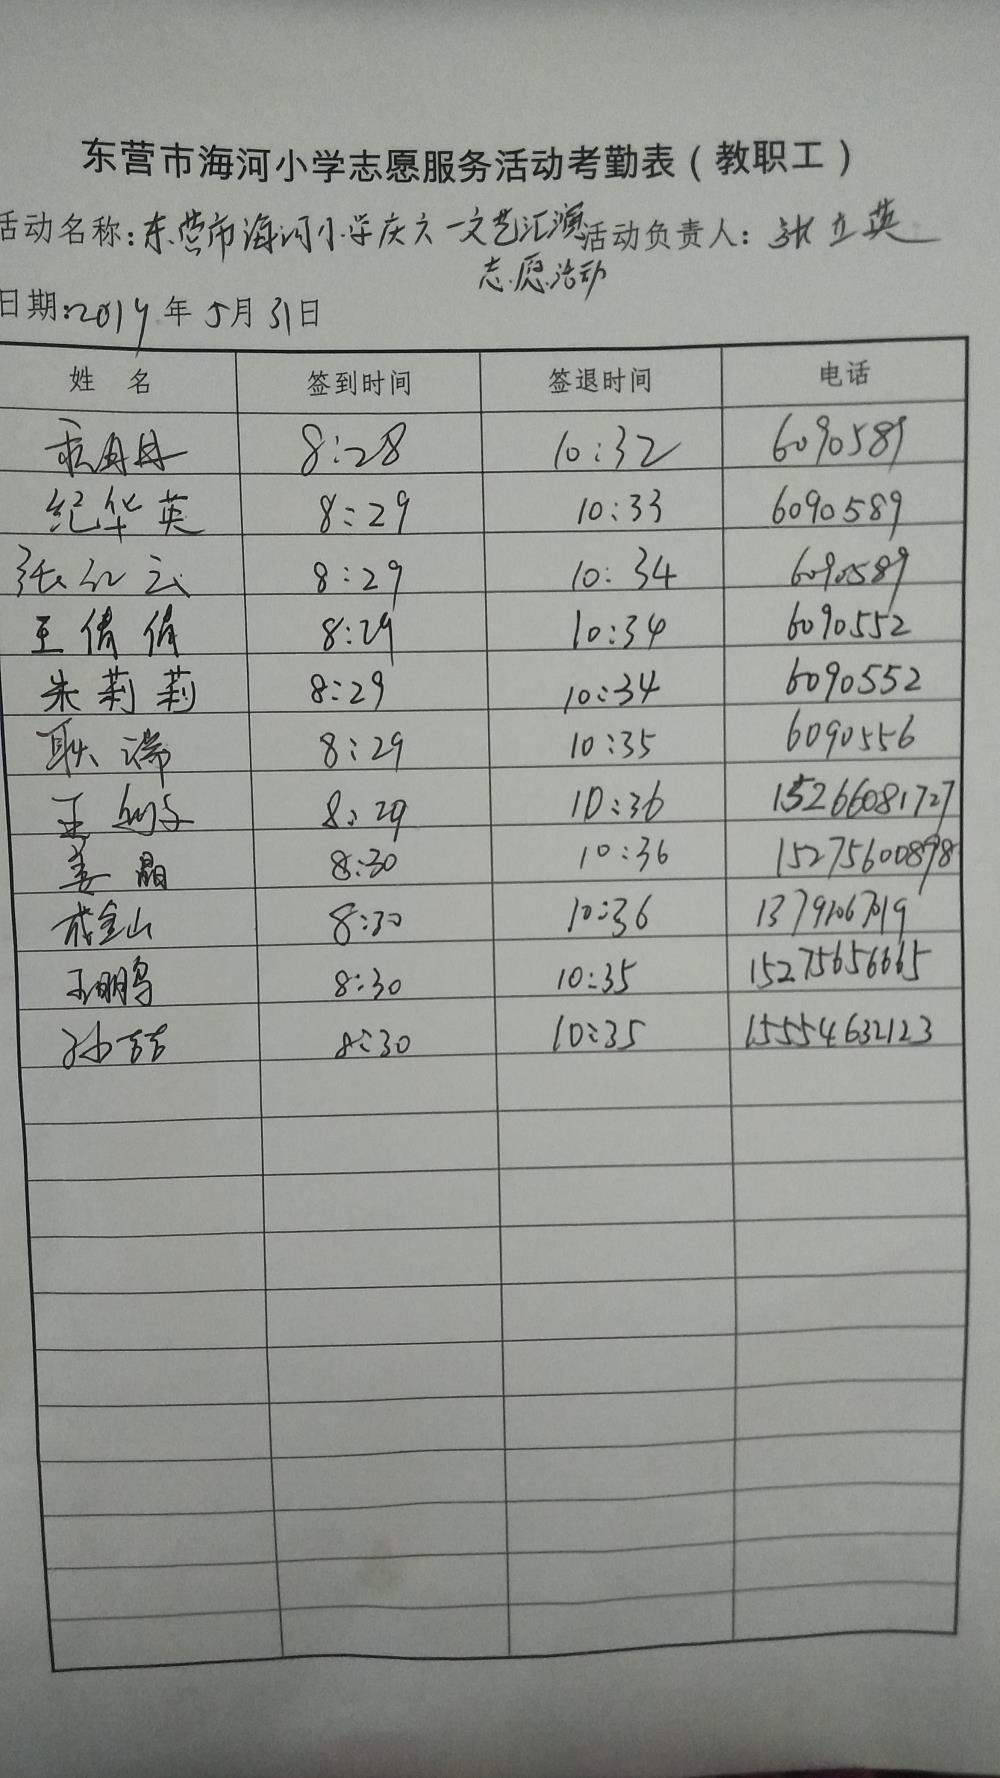 东营市海河小学志愿服务活动考勤表（教职工）
活动名称：东营市海河小学庆六一文艺汇演 活动负责人：张立英
志愿活动
日期：2019年5月31日
姓 名 签到时间 签退时间 电话
8:28 10:32 6090589
纪华英 8:29 10:33 6090589
张红云 8:29 10:34 6090589
王倩倩 8:29 10:34 6090552
朱莉莉 8:29 10:34 6090552
耿瑞 8:29 10:35 6090556
王 8:29 10:36 15266081727
姜晶 8:30 10:36 15275600898
成金山 8:30 10:36
王鹏 8:30 10:35 15275656665
孙喆 8:30 10:35 15554632123